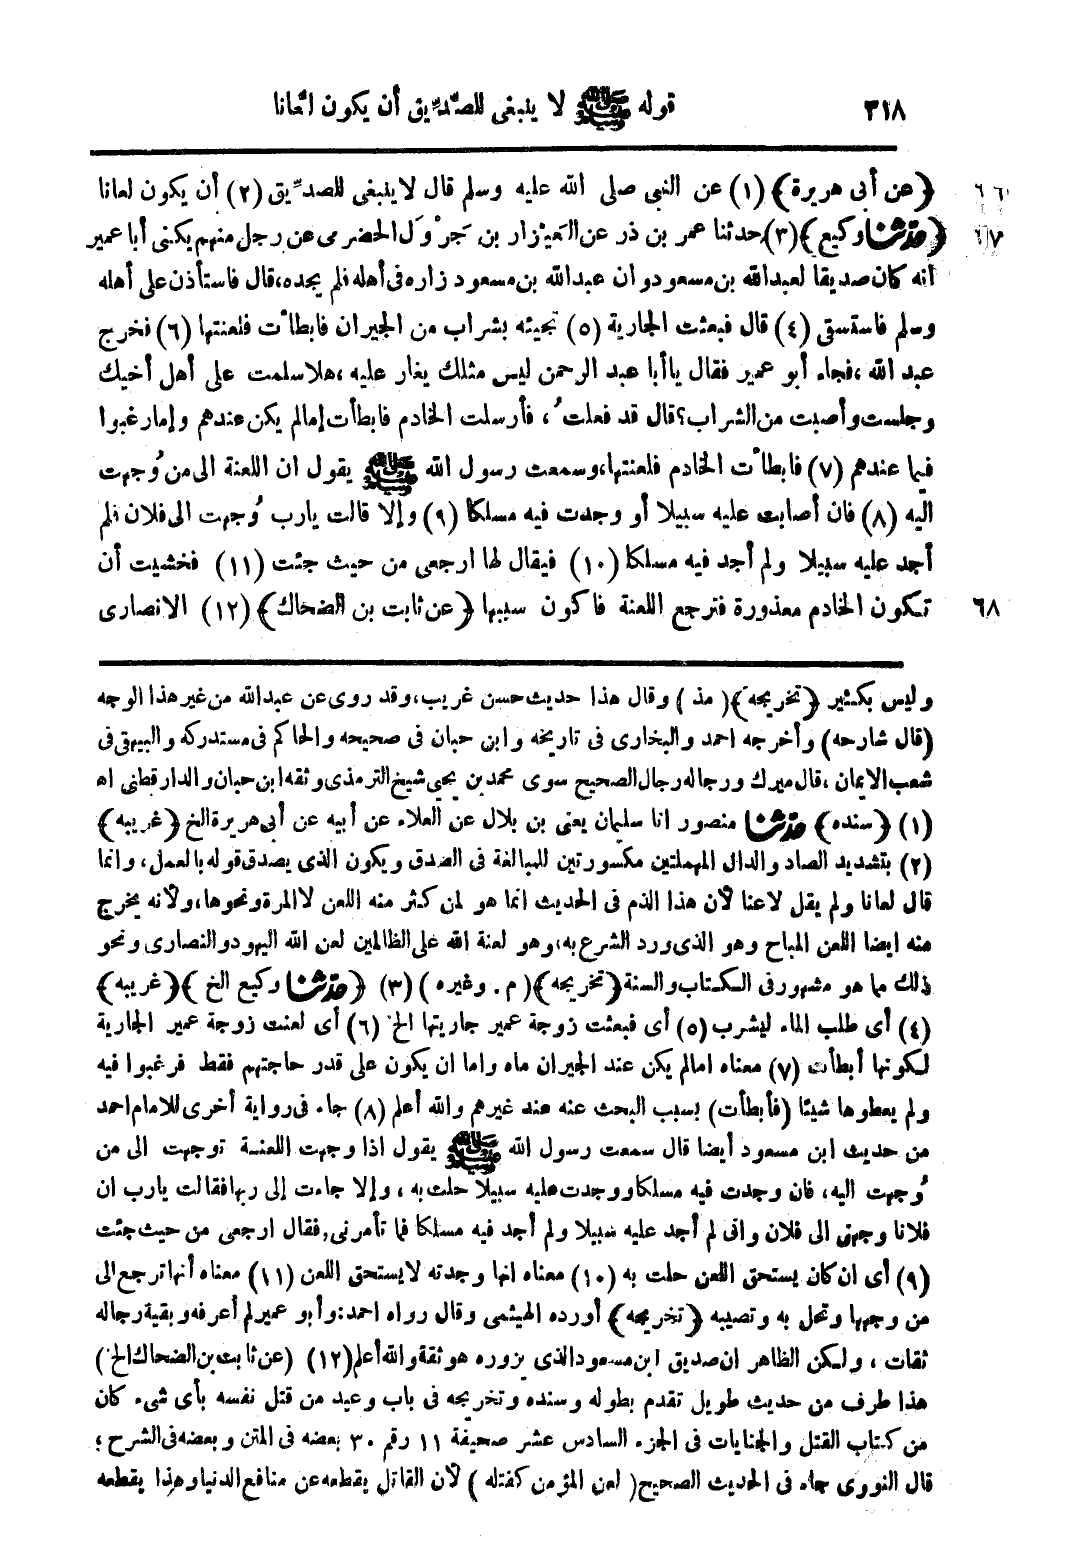 ٣١٨ قوله ﷺ لا ينبغى للصدّيق أن يكون لعّانا
٦٦ ﴿عن أبى هريرة﴾ (١) عن النبى صلى الله عليه وسلم قال لا ينبغى للصدّيق (٢) أن يكون لعانا
٦٧ ﴿حدثنا وكيع﴾ (٣) حدثنا عمر بن ذر عن العَيْزار بن جَرْوَل الحضرمى عن رجل منهم يكنى أبا عمير
أنه كان صديقا لعبدالله بن مسعود وان عبدالله بن مسعود زاره فى أهله فلم يجده، قال فاستأذن على أهله
وسلم فاستسقى (٤) قال فبعثت الجارية (٥) تجيئه بشراب من الجيران فابطأت فلعنتها (٦) فخرج
عبد الله، فجاء أبو عمير فقال يا أبا عبد الرحمن ليس مثلك يغار عليه، هلا سلمت على أهل أخيك
وجلست وأصبت من الشراب؟ قال قد فعلتُ، فأرسلت الخادم فابطأت إما لم يكن عندهم وإما رغبوا
فيما عندهم (٧) فابطأت الخادم فلعنتها، وسمعت رسول الله ﷺ يقول ان اللعنة الى من وُجهت
اليه (٨) فان أصابت عليه سبيلا أو وجدت فيه مسلكا (٩) وإلا قالت يارب وُجهت الى فلان فلم
أجد عليه سبيلا ولم أجد فيه مسلكا (١٠) فيقال لها ارجعى من حيث جئت (١١) فخشيت أن
٦٨ تكون الخادم معذورة فترجع اللعنة فاكون سببها ﴿عن ثابت بن الضحاك﴾ (١٢) الانصارى
وليس بكثير ﴿تخريجه﴾ (مذ) وقال هذا حديث حسن غريب، وقد روى عن عبدالله من غير هذا الوجه
(قال شارحه) وأخرجه احمد والبخارى فى تاريخه وابن حبان فى صحيحه والحاكم فى مستدركه والبيهقى فى
شعب الايمان، قال ميرك ورجاله رجال الصحيح سوى محمد بن يحيى شيخ الترمذى وثقه ابن حبان والدارقطنى اه
(١) ﴿سنده﴾ حدثنا منصور انا سليمان يعنى بن بلال عن العلاء عن أبيه عن أبى هريرة الخ ﴿غريبه﴾
(٢) بتشديد الصاد والدال المهملتين مكسورتين للمبالغة فى الصدق ويكون الذى يصدق قوله بالعمل، وانما
قال لعانا ولم يقل لاعنا لأن هذا الذم فى الحديث انما هو لمن كثر منه اللعن لا المرة ونحوها، ولأنه يخرج
منه ايضا اللعن المباح وهو الذى ورد الشرع به، وهو لعنة الله على الظالمين لعن الله اليهود والنصارى ونحو
ذلك مما هو مشهور فى الكتاب والسنة ﴿تخريجه﴾ (م. وغيره) (٣) ﴿حدثنا وكيع الخ﴾ ﴿غريبه﴾
(٤) أى طلب الماء ليشرب (٥) أى فبعثت زوجة عمير جاريتها الخ (٦) أى لعنت زوجة عمير الجارية
لكونها أبطأت (٧) معناه اما لم يكن عند الجيران ماء واما ان يكون على قدر حاجتهم فقط فرغبوا فيه
ولم يعطوها شيئا (فأبطأت) بسبب البحث عنه عند غيرهم والله أعلم (٨) جاء فى رواية أخرى للامام احمد
من حديث ابن مسعود أيضا قال سمعت رسول الله ﷺ يقول اذا وجهت اللعنة توجهت الى من
وُجهت اليه، فان وجدت فيه مسلكا ووجدت عليه سبيلا حلت به، وإلا جاءت إلى ربها فقالت يارب ان
فلانا وجهنى الى فلان وانى لم أجد عليه سبيلا ولم أجد فيه مسلكا فما تأمرنى, فقال ارجعى من حيث جئت
(٩) أى ان كان يستحق اللعن حلت به (١٠) معناه انها وجدته لا يستحق اللعن (١١) معناه أنها ترجع الى
من وجهها وتحل به وتصيبه ﴿تخريجه﴾ أورده الهيثمى وقال رواه احمد: وأبو عمير لم أعرفه وبقية رجاله
ثقات، ولكن الظاهر ان صديق ابن مسعود الذى يزوره هو ثقة والله أعلم (١٢) (عن ثابت بن الضحاك الخ)
هذا طرف من حديث طويل تقدم بطوله وسنده وتخريجه فى باب وعيد من قتل نفسه بأى شىء كان
من كتاب القتل والجنايات فى الجزء السادس عشر صحيفة ١١ رقم ٣٠ بعضه فى المتن وبعضه فى الشرح؛
قال النووى جاء فى الحديث الصحيح (لعن المؤمن كقتله) لأن القاتل يقطعه عن منافع الدنيا وهذا يقطعه